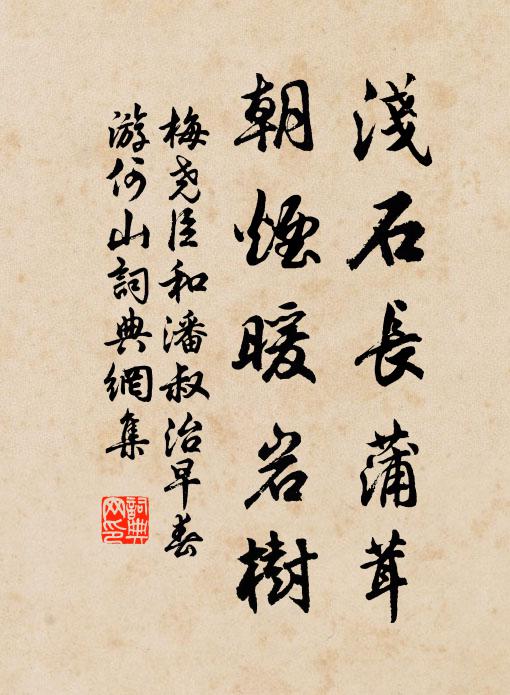 淺石長蒲茸
朝煙暖岩樹
梅堯臣和潘叔治早春
游何山詞典網集
詞典網印